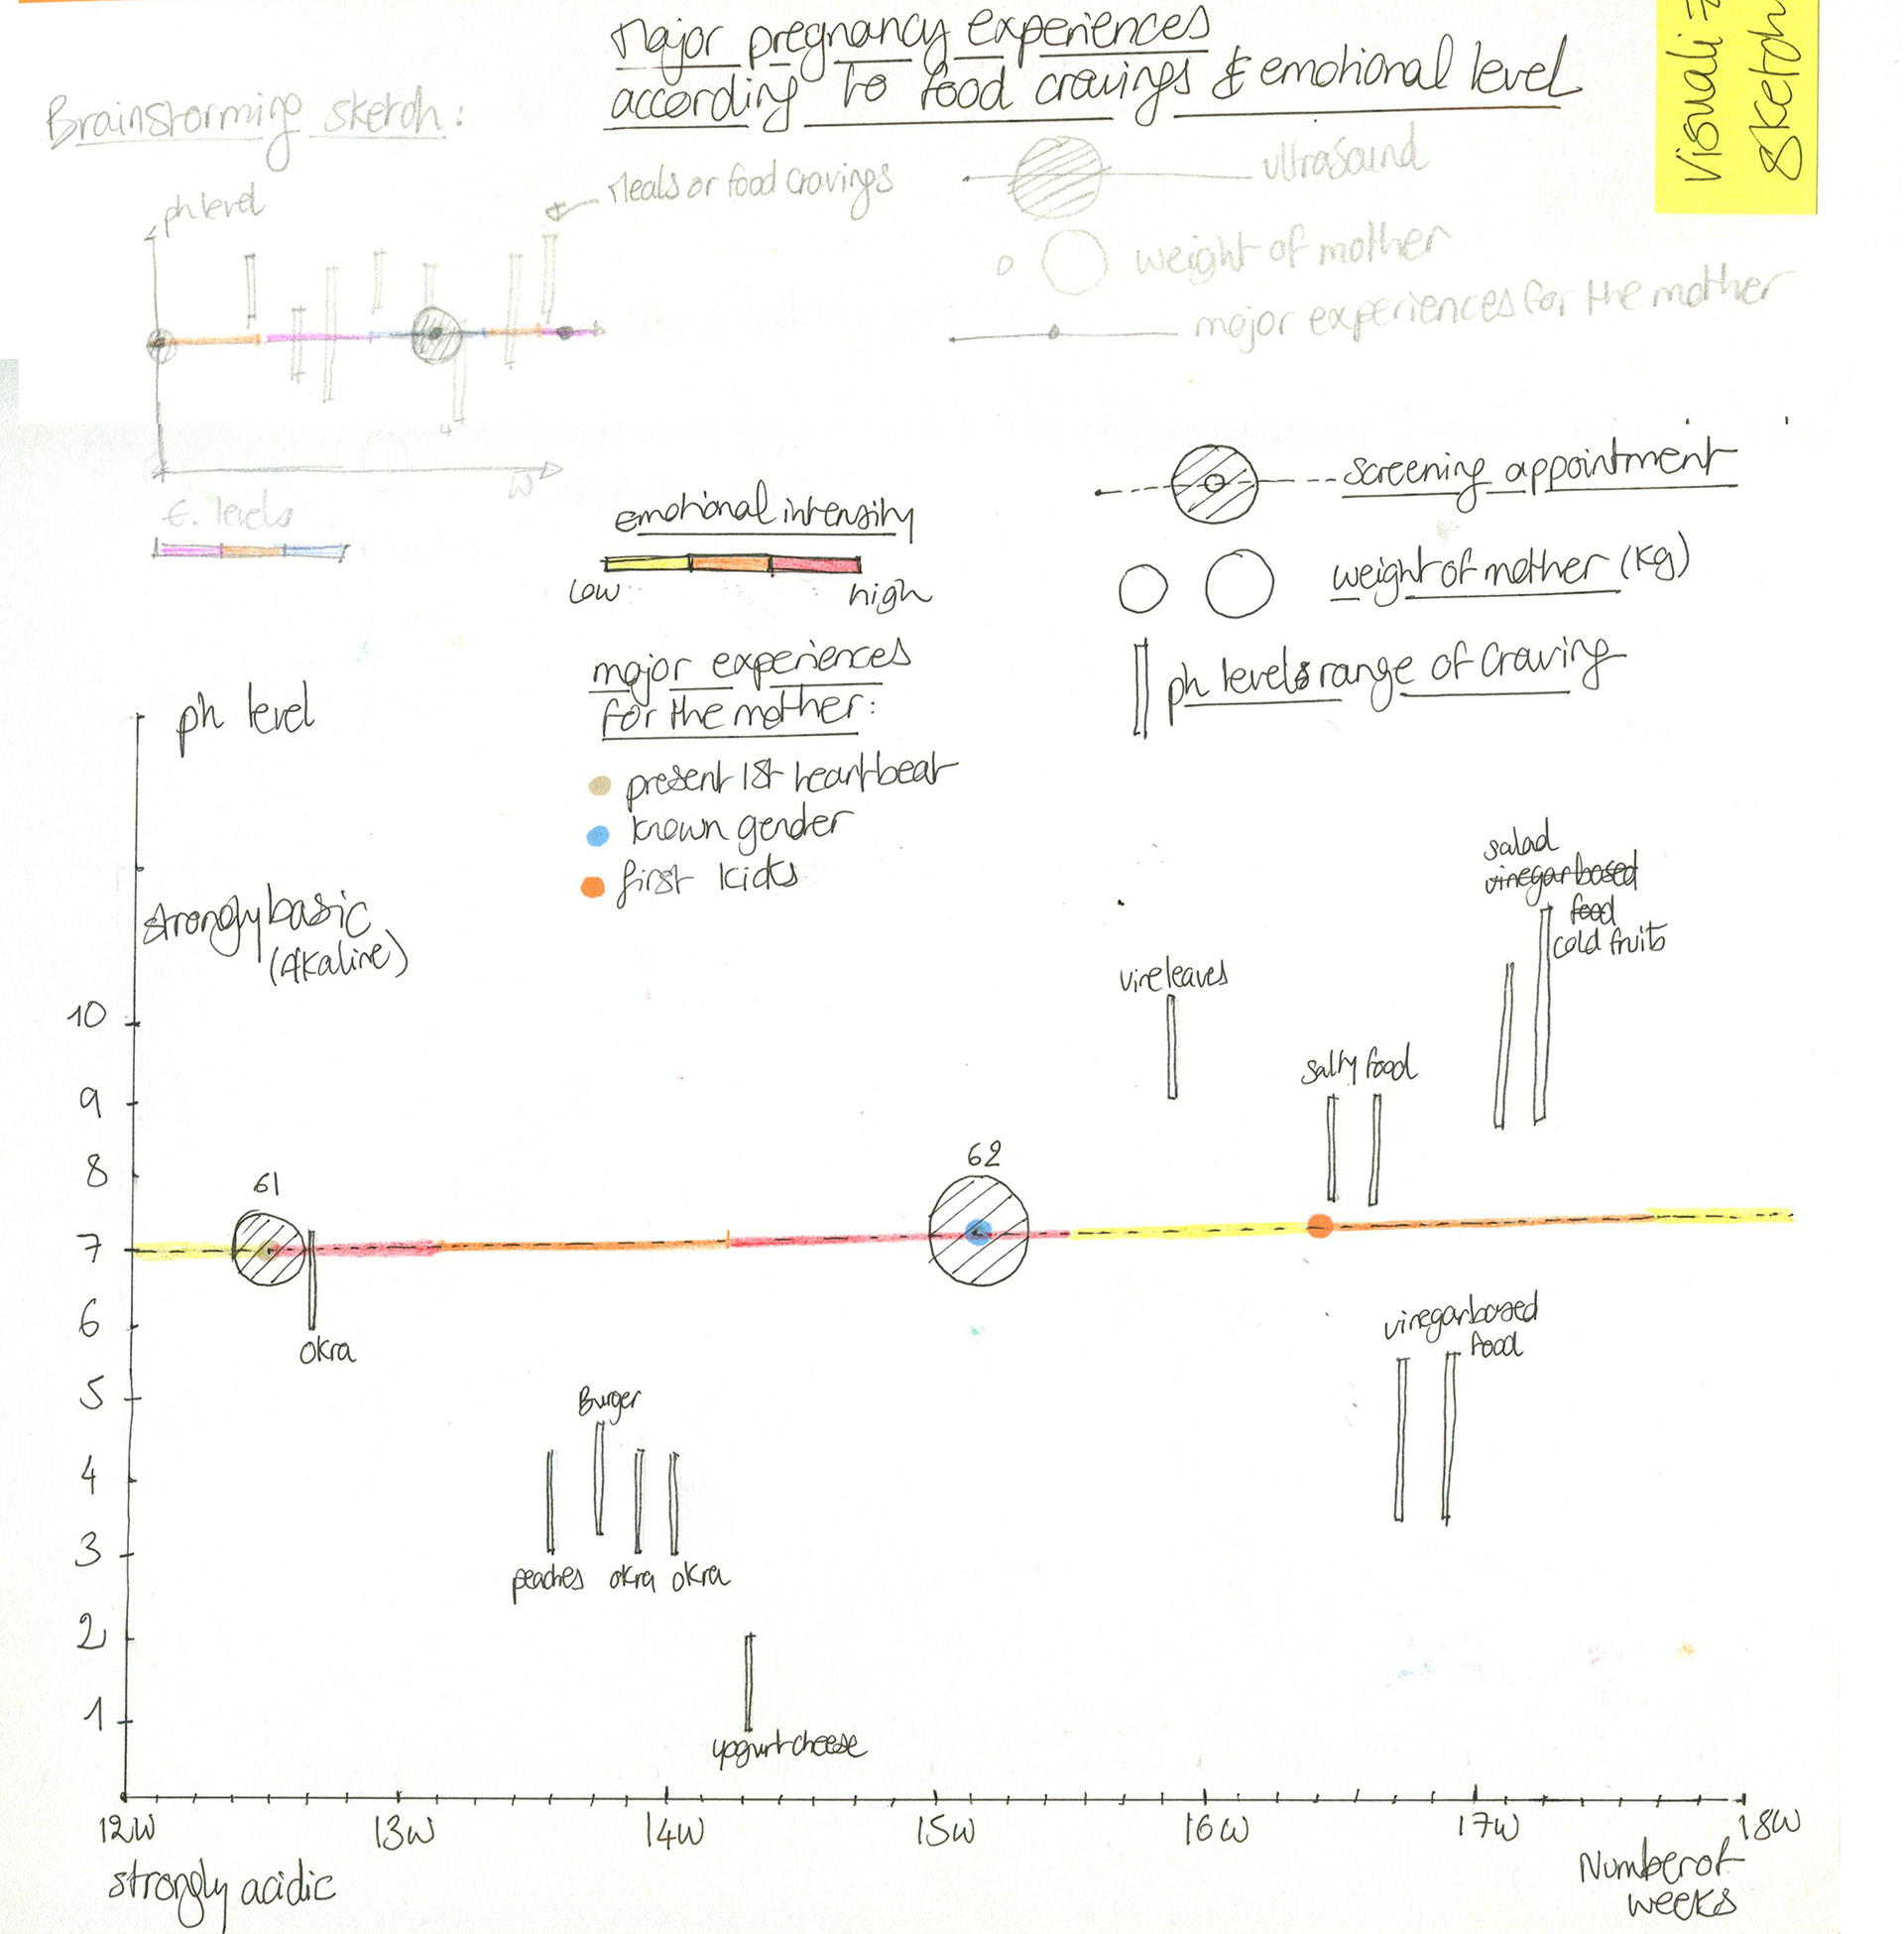 Major pregnancy experiences
according to food cravings & emotional level
Brainstorming sketch:
ph level
Meals or food cravings
ultrasound
weight of mother
major experiences for the mother
W
E. levels
emotional intensity
low
high
screening appointment
weight of mother (kg)
ph levels range of craving
major experiences
for the mother:
present 1st heartbeat
known gender
first kicks
ph level
strongly basic
(Alkaline)
10
9
8
7
6
5
4
3
2
1
61
okra
peaches
Burger
okra
okra
yogurt cheese
62
vine leaves
salty food
salad
vinegar based
food
cold fruits
vinegar based
food
12W
13W
14W
15W
16W
17W
18W
strongly acidic
Number of
weeks
Sketch